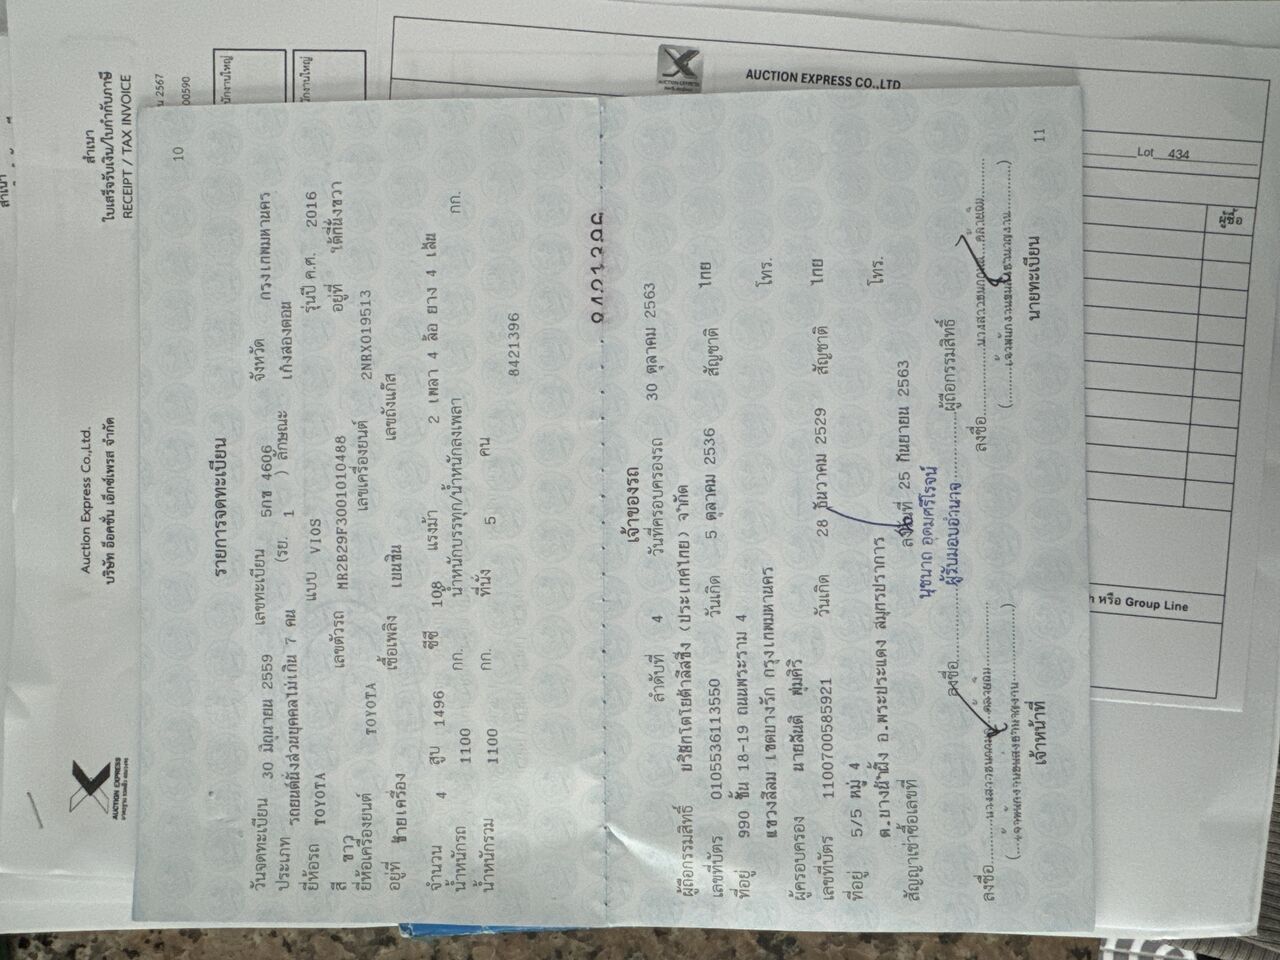 สำเนา
ใบเสร็จรับเงิน/ใบกำกับภาษี
RECEIPT / TAX INVOICE
Auction Express Co.,Ltd.
บริษัท อ๊อคชั่น เอ็กซ์เพรส จำกัด
AUCTION EXPRESS
2567
00590
AUCTION EXPRESS CO.,LTD
Lot 434
หรือ Group Line
10
รายการจดทะเบียน
วันจดทะเบียน 30 มิถุนายน 2559 เลขทะเบียน 5กช 4606 จังหวัด กรุงเทพมหานคร
ประเภท รถยนต์นั่งส่วนบุคคลไม่เกิน 7 คน (รย. 1 ) ลักษณะ เก๋งสองตอน
ยี่ห้อรถ TOYOTA แบบ VIOS รุ่นปี ค.ศ. 2016
สี ขาว เลขตัวรถ MR2B29F3001010488 อยู่ที่ ใต้ที่นั่งขวา
ยี่ห้อเครื่องยนต์ TOYOTA เลขเครื่องยนต์ 2NRX019513
อยู่ที่ ซ้ายเครื่อง เชื้อเพลิง เบนซิน เลขถังแก๊ส
จำนวน 4 สูบ 1496 ซีซี 108 แรงม้า 2 เพลา 4 ล้อ ยาง 4 เส้น
น้ำหนักรถ 1100 กก. น้ำหนักบรรทุก/น้ำหนักลงเพลา กก.
น้ำหนักรวม 1100 กก. ที่นั่ง 5 คน
8421396
เจ้าของรถ
ลำดับที่ 4 วันที่ครอบครองรถ 30 ตุลาคม 2563
ผู้ถือกรรมสิทธิ์ บริษัทโตโยต้าลีสซิ่ง (ประเทศไทย) จำกัด
เลขที่บัตร 0105536113550 วันเกิด 5 ตุลาคม 2536 สัญชาติ ไทย
ที่อยู่ 990 ชั้น 18-19 ถนนพระราม 4 โทร.
แขวงสีลม เขตบางรัก กรุงเทพมหานคร
ผู้ครอบครอง นายสันติ พุ่มศิริ
เลขที่บัตร 1100700585921 วันเกิด 28 ธันวาคม 2529 สัญชาติ ไทย
ที่อยู่ 5/5 หมู่ 4 โทร.
ต.บางน้ำผึ้ง อ.พระประแดง สมุทรปราการ
สัญญาเช่าซื้อเลขที่ ลงวันที่ 25 กันยายน 2563
นุชนาถ อุดมศรีโรจน์
ผู้รับมอบอำนาจ
ลงชื่อ ผู้ถือกรรมสิทธิ์
ลงชื่อ
ลงชื่อ
เจ้าหน้าที่
นายทะเบียน
11